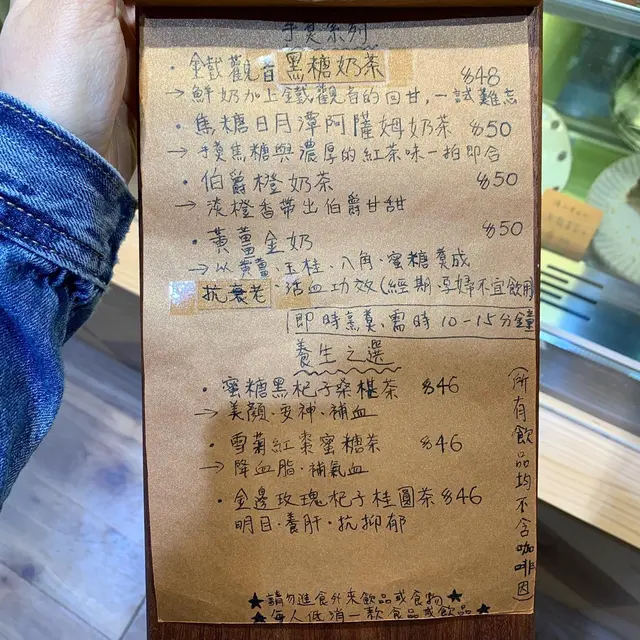 手煲系列
・鐵觀音黑糖奶茶 $48
→鮮奶加上鐵觀音的回甘，一試難忘
・焦糖日月潭阿薩姆奶茶 $50
→手煲焦糖與濃厚的紅茶味一拍即合
・伯爵橙奶茶 $50
→淡橙香帶出伯爵甘甜
・黃薑金奶 $50
→以黃薑、玉桂、八角、蜜糖煲成
抗衰老、活血功效(經期、孕婦不宜飲用)
即時蒸煲、需時10-15分鐘
養生之選
・蜜糖黑杞子桑椹茶 $46
→美顏・安神・補血
・雪菊紅棗蜜糖茶 $46
→降血脂・補氣血
・金邊玫瑰杞子桂圓茶 $46
明目・養肝・抗抑郁
(所有飲品均不含咖啡因)
★請勿進食外來飲品或食物★
★每人低消一款食品或飲品★